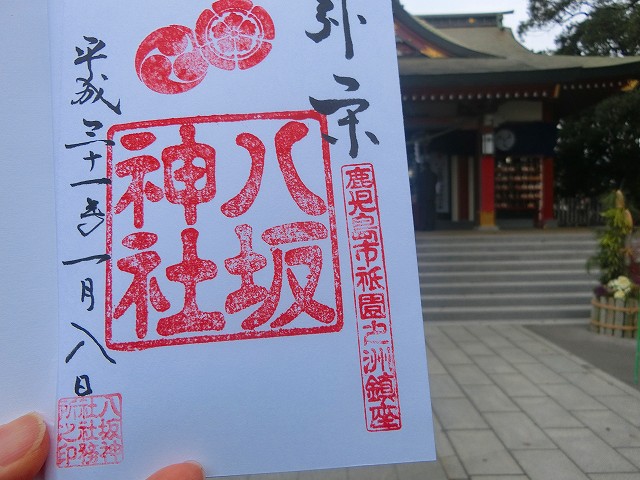 弥栄
鹿児島市祇園之洲鎮座
八坂
神社
平成三十一年一月八日
八坂神
社社務
所之印